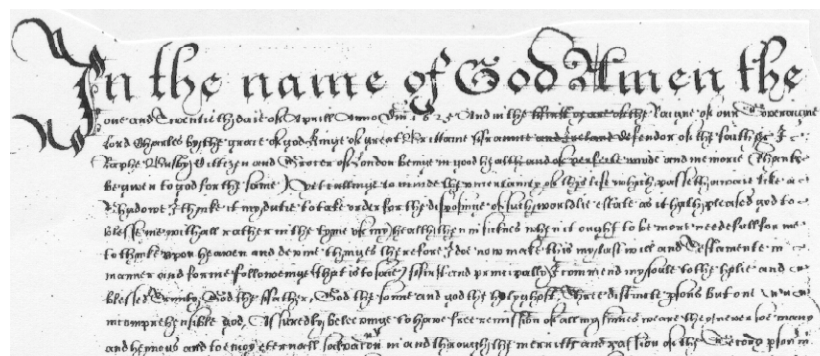 In the name of God Amen the
one and Twentithe daie of Aprill Anno Dm 162 And in the yeare of the Raigne of our Soveraigne
Lord Charles by the grace of god Kinge of great Brittaine ffraunce and Ireland defendor of the faith &c I
Raphe Busby Cittizen and Grocer of London beinge in good health and of perfecte minde and memorie (thanks
be given to god for the same) yet callinge to minde the uncertainty of this life which passeth awaie like a
shadowe I thinke it my dutie to take order for the disposinge of such worldlie estate as it hath pleased god to
blesse me withall rather in the tyme of my health then in sicknes when it ought to be more needefull for me
to thinke upon heaven and devine thinges therefore I doe now make this my last will and Testamente in
manner and forme followeinge (that is to saie) ffirst and principally I commend my soule to the holie and
blessed Trinity, God the ffather, God the sonne and god the holy ghost, Three distincte psons but one
incomprehensible god, Assuredly beleevinge to have free remission of all my sinnes weare they never soe many
and heynous and to enioy eternall salvacon in and through the merritts and passion of the Second pson in